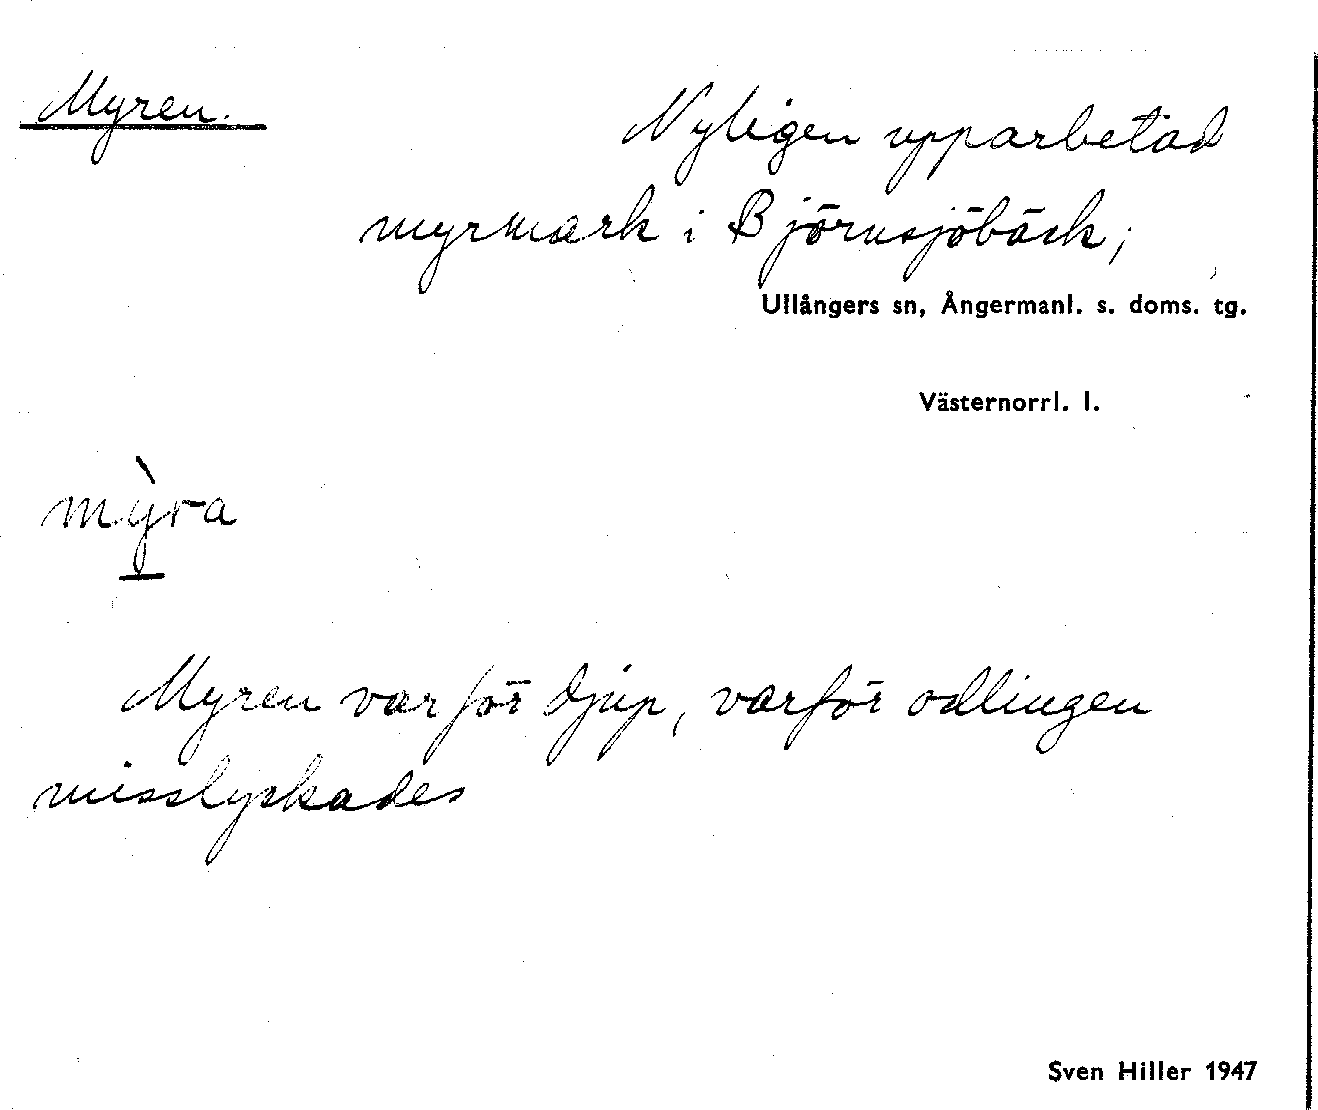 Myren.
Nyligen upparbetad
myrmark i Björnsjöbäck;
Ullångers sn, Ångermanl. s. doms. tg.
Västernorrl. l.
mỳra
Myren var för djup, varför odlingen
misslyckades
Sven Hiller 1947